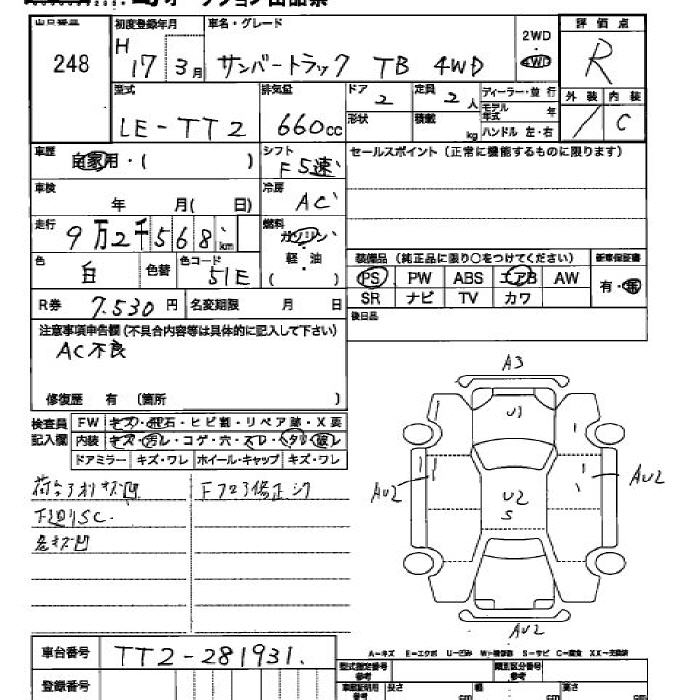 オークション出品票
出品番号 初度登録年月 車名・グレード 2WD 評価点
248 H 17 3月 サンバートラック TB 4WD 4WD R
型式 LE-TT2
排気量 660cc
ドア 2 定員 2人 ディーラー・並行
モデル年式 年
形状 積載 kg ハンドル 左・右
外装 / 内装 C
車歴 自家用・( ) シフト F5速 セールスポイント(正常に機能するものに限ります)
車検 年 月( 日) 冷房 AC
走行 9万2千568km 燃料 ガソリン
軽・油
( )
色 白 色替 色コード 51E
装備品(純正品に限り○をつけてください) 新車保証書
PS PW ABS エアB AW 有・無
SR ナビ TV カワ
R券 7.530円 名変期限 月 日
後日品
注意事項申告欄(不具合内容等は具体的に記入して下さい)
AC不良
修復歴 有 〔箇所 〕
検査員記入欄
FW キズ・飛石・ヒビ割・リペア跡・X要
内装 キズ・汚レ・コゲ・穴・スレ・ヘタリ・破レ
ドアミラー キズ・ワレ ホイール・キャップ キズ・ワレ
下廻りSC.
A3
U1
AU2
AU2
U2
S
AU2
A=キズ E=エクボ U=凹ミ W=補修跡 S=サビ C=腐食 XX=交換済
車台番号 TT2-281931.
登録番号
型式指定番号 参考 類別区分番号 参考
車庫証明用 参考 長さ cm 幅 cm 高さ cm